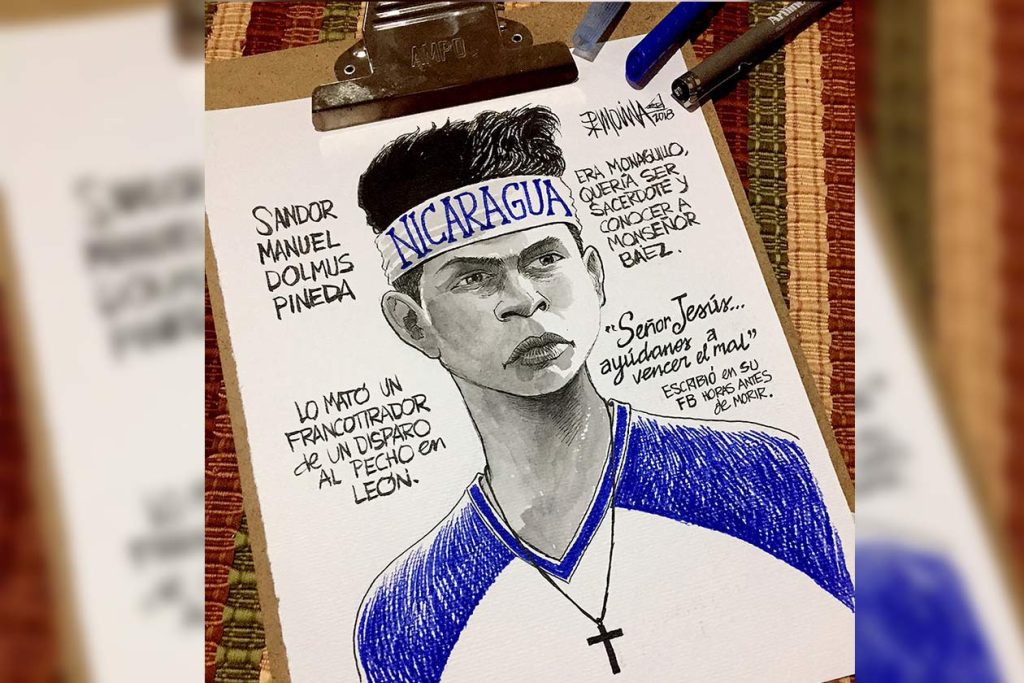 AMPO
Artline
PxMOLINA
2018
SANDOR
MANUEL
DOLMUS
PINEDA
NICARAGUA
ERA MONAGUILLO,
QUERÍA SER
SACERDOTE Y
CONOCER A
MONSEÑOR
BÁEZ.
"Señor Jesús...
ayúdanos a
vencer el mal"
ESCRIBIÓ en SU
FB HORAS ANTES
de MORIR.
LO MATÓ UN
FRANCOTIRADOR
de UN DISPARO
AL PECHO en
LEÓN.